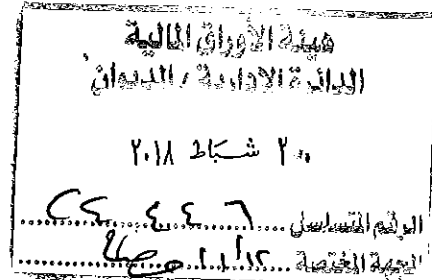 هيئة الأوراق المالية
الدائرة الادارية / الديوان
٢٠ شباط ٢٠١٨
الرقم المتسلسل
الجهة المختصة